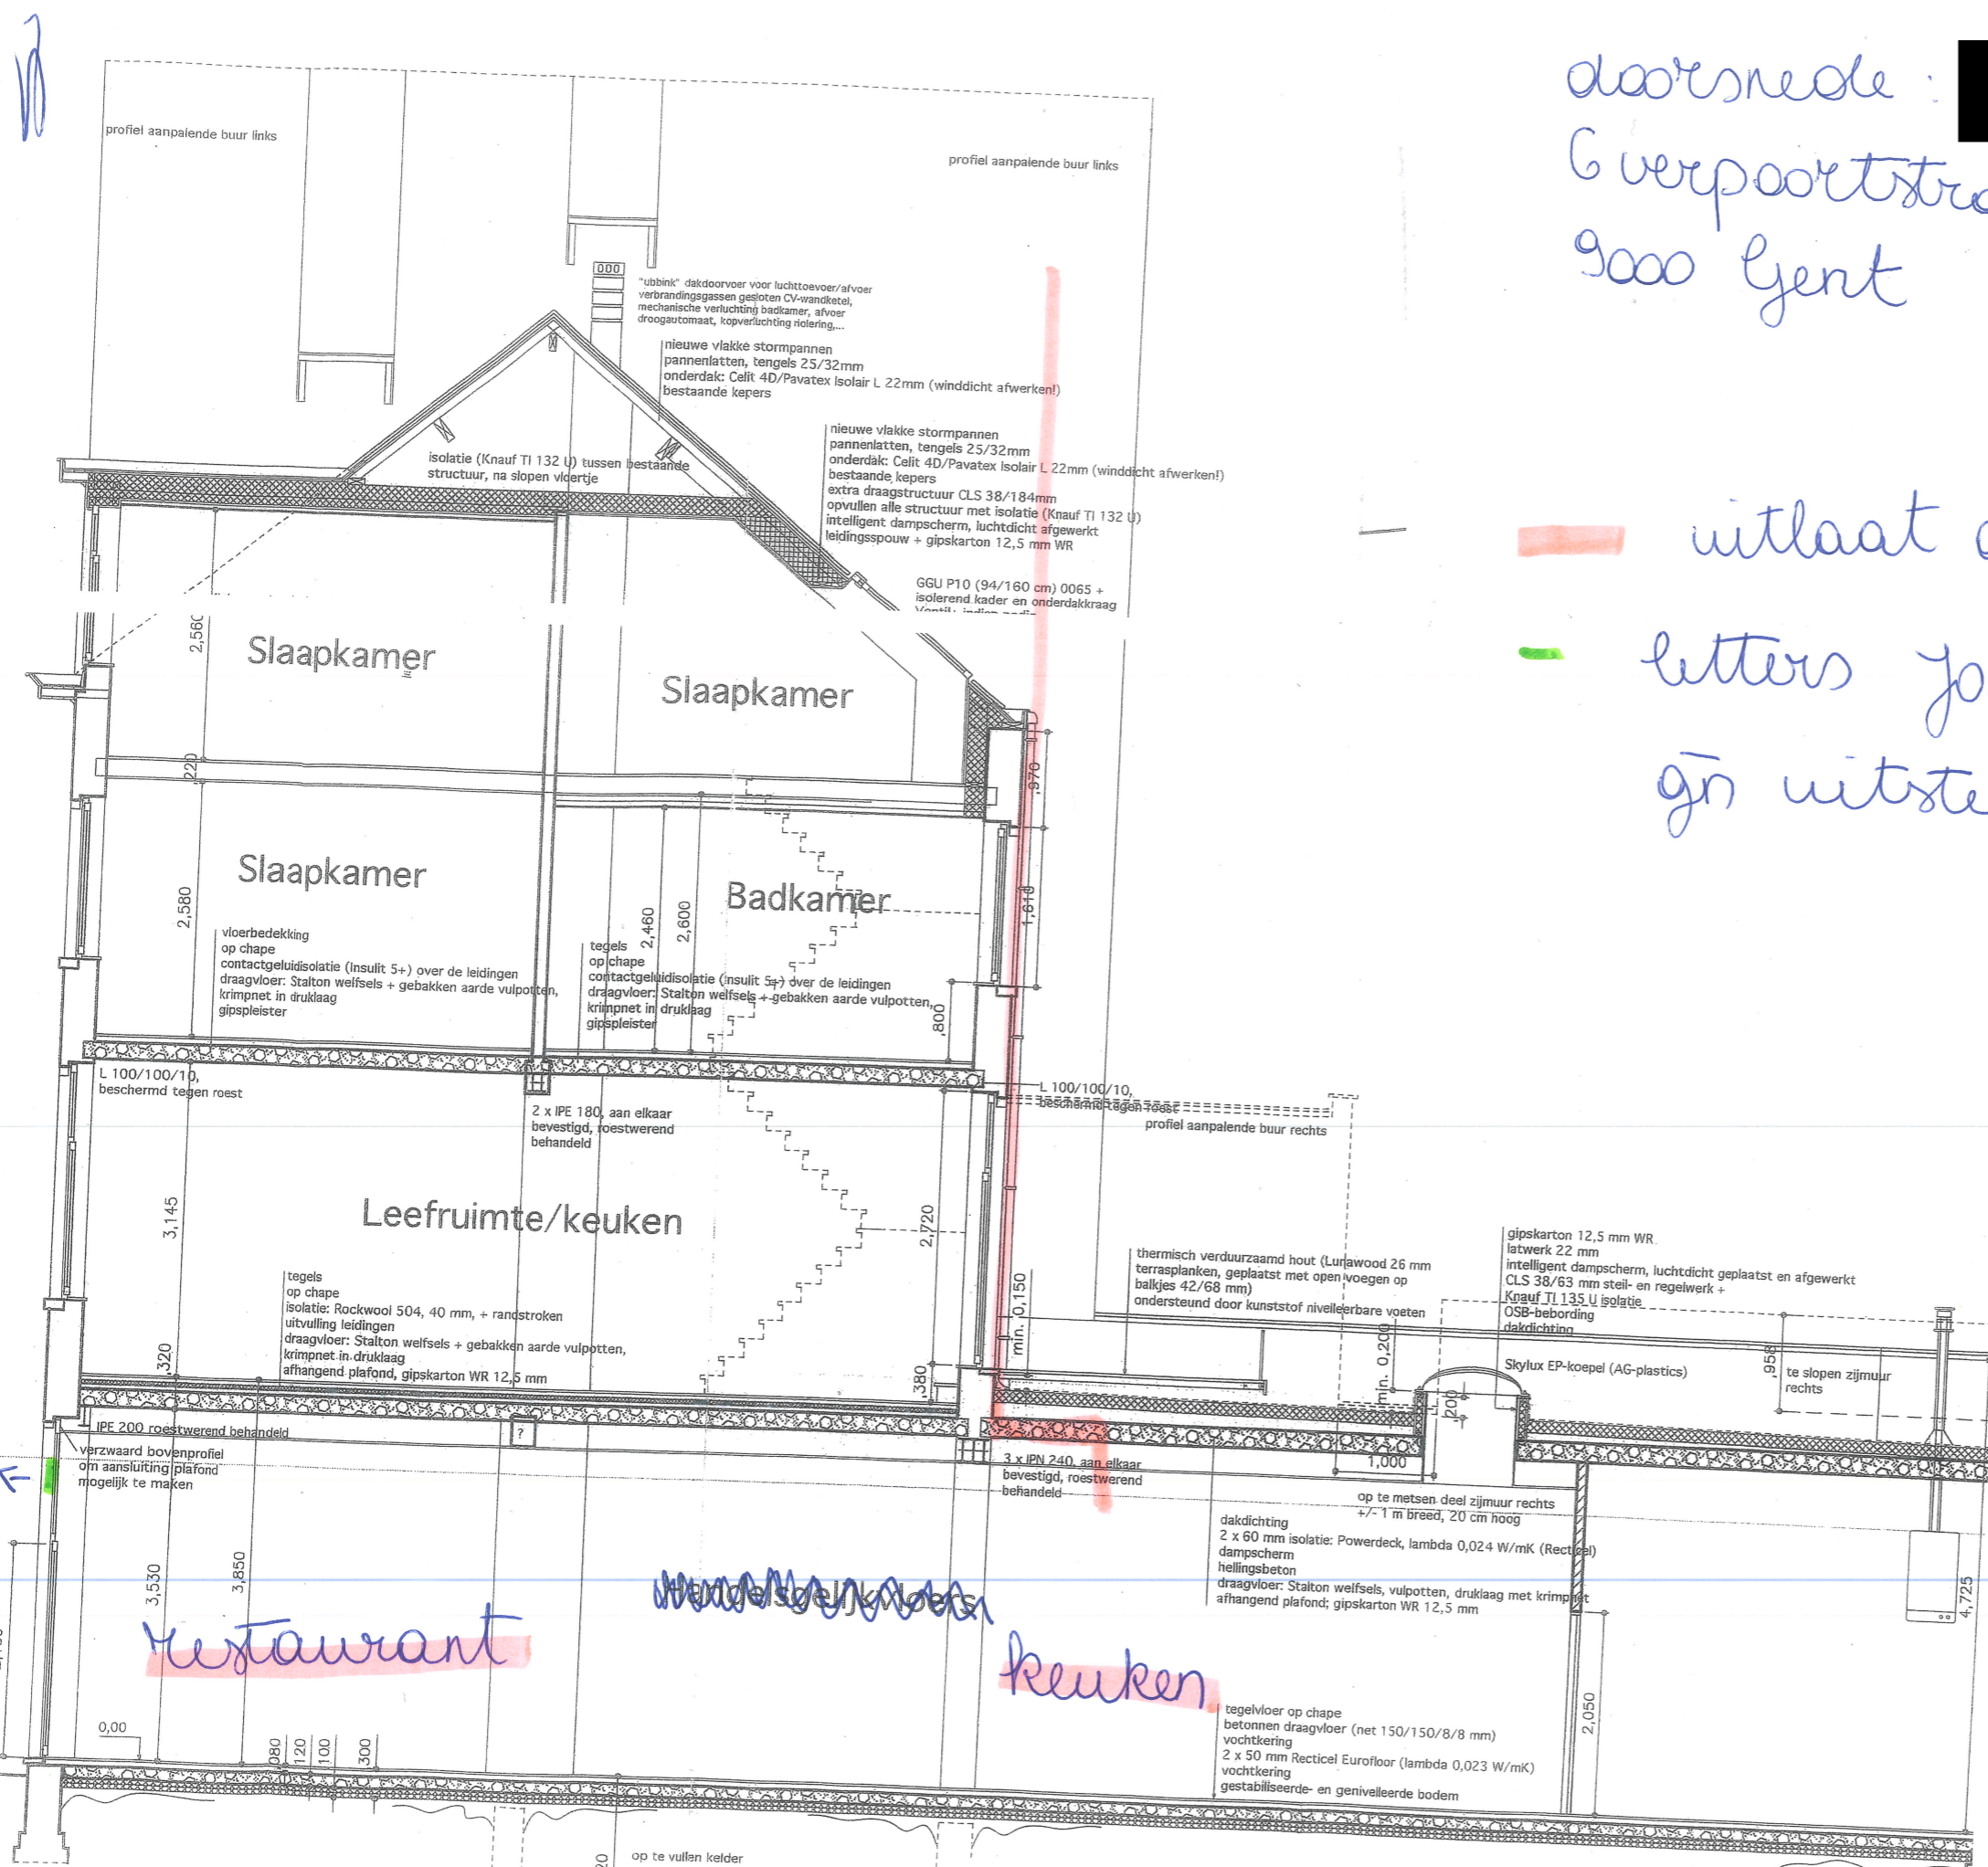 doorsnede :
6 verpoortstra
9000 Gent
profiel aanpalende buur links
profiel aanpalende buur links
"ubbink" dakdoorvoer voor luchttoevoer/afvoer
verbrandingsgassen gesloten CV-wandketel,
mechanische verluchting badkamer, afvoer
droogautomaat, kopverluchting riolering,...
nieuwe vlakke stormpannen
pannenlatten, tengels 25/32mm
onderdak: Celit 4D/Pavatex Isolair L 22mm (winddicht afwerken!)
bestaande kepers
nieuwe vlakke stormpannen
pannenlatten, tengels 25/32mm
onderdak: Celit 4D/Pavatex Isolair L 22mm (winddicht afwerken!)
bestaande kepers
extra draagstructuur CLS 38/184mm
opvullen alle structuur met isolatie (Knauf TI 132 U)
intelligent dampscherm, luchtdicht afgewerkt
leidingsspouw + gipskarton 12,5 mm WR
isolatie (Knauf TI 132 U) tussen bestaande
structuur, na slopen vloertje
uitlaat
GGU P10 (94/160 cm) 0065 +
isolerend kader en onderdakkraag
letters
gn uitste
2,560
Slaapkamer
Slaapkamer
220
,970
Slaapkamer
Badkamer
2,580
2,460
2,600
1,610
,800
vloerbedekking
op chape
contactgeluidisolatie (Insulit 5+) over de leidingen
draagvloer: Stalton welfsels + gebakken aarde vulpotten,
krimpnet in druklaag
gipspleister
tegels
op chape
contactgeluidisolatie (Insulit 5+) over de leidingen
draagvloer: Stalton welfsels + gebakken aarde vulpotten,
krimpnet in druklaag
gipspleister
L 100/100/10,
beschermd tegen roest
2 x IPE 180, aan elkaar
bevestigd, roestwerend
behandeld
L 100/100/10,
beschermd tegen roest
profiel aanpalende buur rechts
Leefruimte/keuken
3,145
2,720
,320
,380
min. 0,150
tegels
op chape
isolatie: Rockwool 504, 40 mm, + randstroken
uitvulling leidingen
draagvloer: Stalton welfsels + gebakken aarde vulpotten,
krimpnet in druklaag
afhangend plafond, gipskarton WR 12,5 mm
thermisch verduurzaamd hout (Lunawood 26 mm
terrasplanken, geplaatst met open voegen op
balkjes 42/68 mm)
ondersteund door kunststof nivelleerbare voeten
gipskarton 12,5 mm WR
latwerk 22 mm
intelligent dampscherm, luchtdicht geplaatst en afgewerkt
CLS 38/63 mm steil- en regelwerk +
Knauf TI 135 U isolatie
OSB-bebording
dakdichting
min. 0,200
200
Skylux EP-koepel (AG-plastics)
,958
te slopen zijmuur
rechts
IPE 200 roestwerend behandeld
verzwaard bovenprofiel
om aansluiting plafond
mogelijk te maken
?
3 x IPN 240, aan elkaar
bevestigd, roestwerend
behandeld
1,000
op te metsen deel zijmuur rechts
+/- 1 m breed, 20 cm hoog
dakdichting
2 x 60 mm isolatie: Powerdeck, lambda 0,024 W/mK (Recticel)
dampscherm
hellingsbeton
draagvloer: Stalton welfsels, vulpotten, druklaag met krimpnet
afhangend plafond; gipskarton WR 12,5 mm
3,530
3,850
Handelsgelijkvloers
4,725
restaurant
keuken
2,050
tegelvloer op chape
betonnen draagvloer (net 150/150/8/8 mm)
vochtkering
2 x 50 mm Recticel Eurofloor (lambda 0,023 W/mK)
vochtkering
gestabiliseerde- en genivelleerde bodem
0,00
080
120
100
300
op te vullen kelder